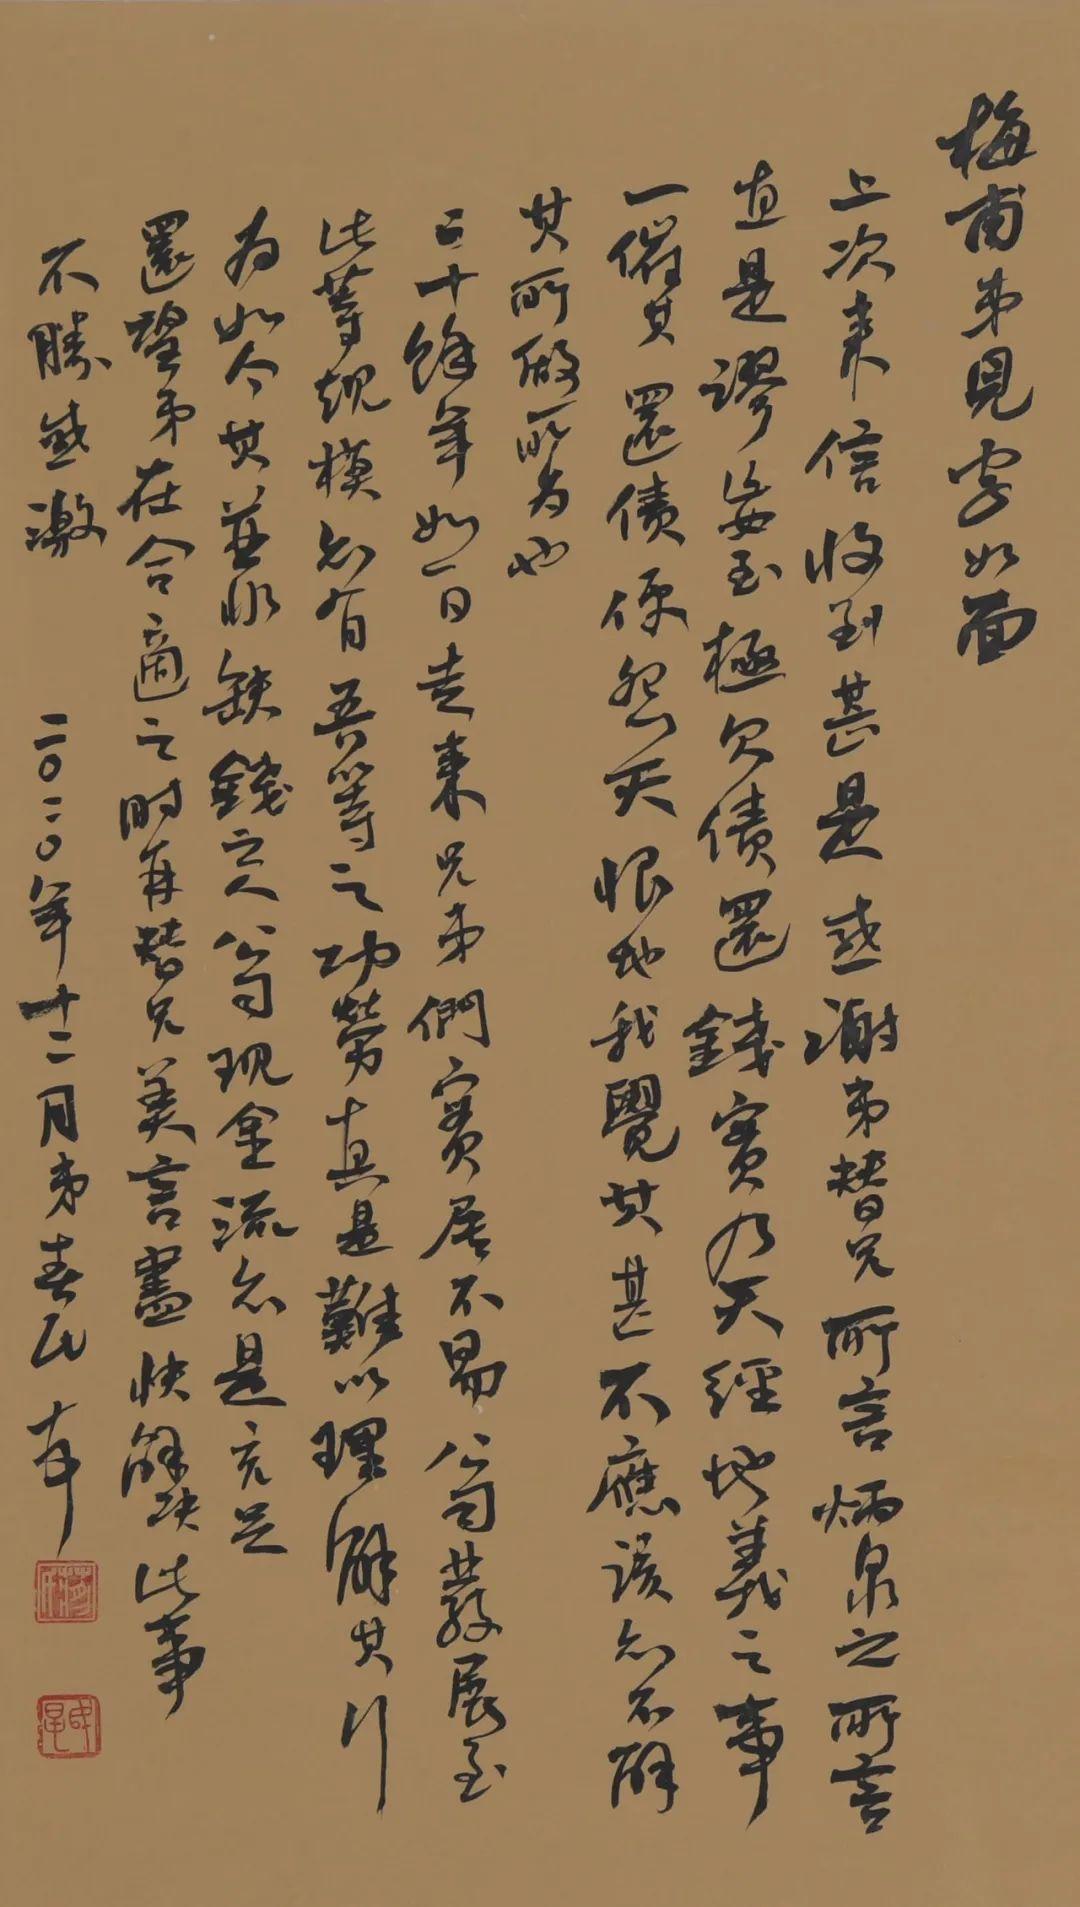 梅甫弟見字如面
上次来信收到甚是感謝弟替兄所言炳泉之所言
直是謬妄至極欠債還錢實乃天經地義之事
一催其還債便怨天恨地我覺其甚不應該亦不解
其所做所为也
二十餘年如一日走来兄弟們實属不易公司發展至
此等規模亦有吾等之功勞真是難以理解其行
为如今其並非缺錢之人公司現金流亦是充足
還望弟在合適之時再替兄美言盡快解决此事
不勝感激
二〇二〇年十二月弟春民